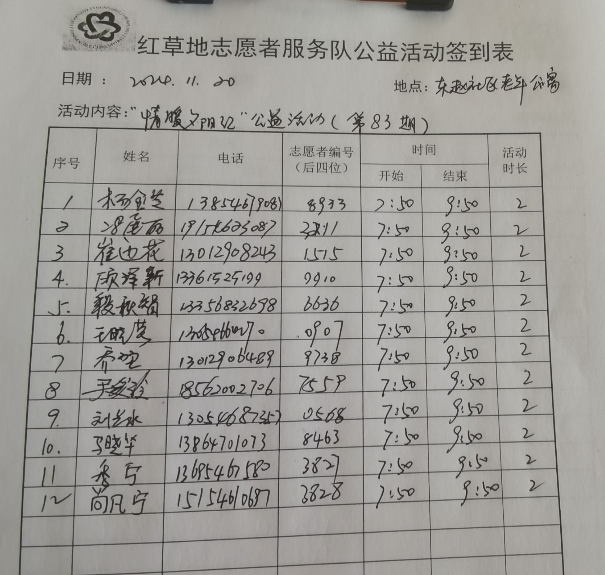 红草地志愿者服务队公益活动签到表
日期： 2024.11.20 地点：东赵社区老年公寓
活动内容："情暖夕阳红"公益活动(第83期)
序号 姓名 电话 志愿者编号(后四位) 时间 活动时长
开始 结束
1 杨金芝 13854679081 8933 7:50 9:50 2
2 7:50 9:50 2
3 崔迎花 13012908243 1515 7:50 9:50 2
4. 顾泽新 13361525199 9910 7:50 9:50 2
5. 13356832698 6636 7:50 9:50 2
6. 0907 7:50 9:50 2
7 乔坤 13012906489 9738 7:50 9:50 2
8 18562002706 7559 7:50 9:50 2
9. 刘兰水 13054687357 0568 7:50 9:50 2
10. 马晓华 13864701073 8463 7:50 9:50 2
11 李宁 13695467580 3827 7:50 9:50 2
12 尚凡宁 15154610697 3828 7:50 9:50 2